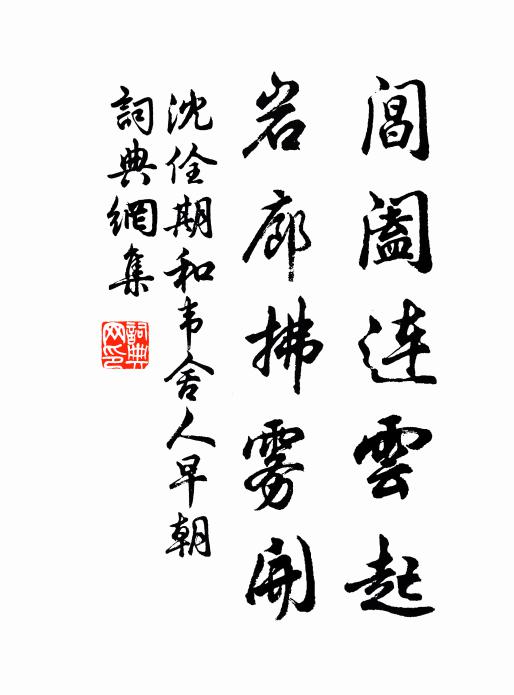 閶闔連雲起
岩廊拂雾開
沈佺期和韦舍人早朝
詞典網集
詞典网印